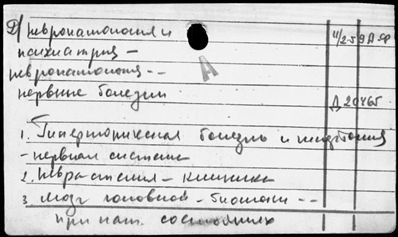 Р/ невропатология и 11/2-59
психиатрия -
невропатология --
нервные болезни Д 20465
А
1. Гипертоническая болезнь и
- нервная система
2. Неврастения - клиника
3. Мозг головной - биотоки --
при пат. состояниях